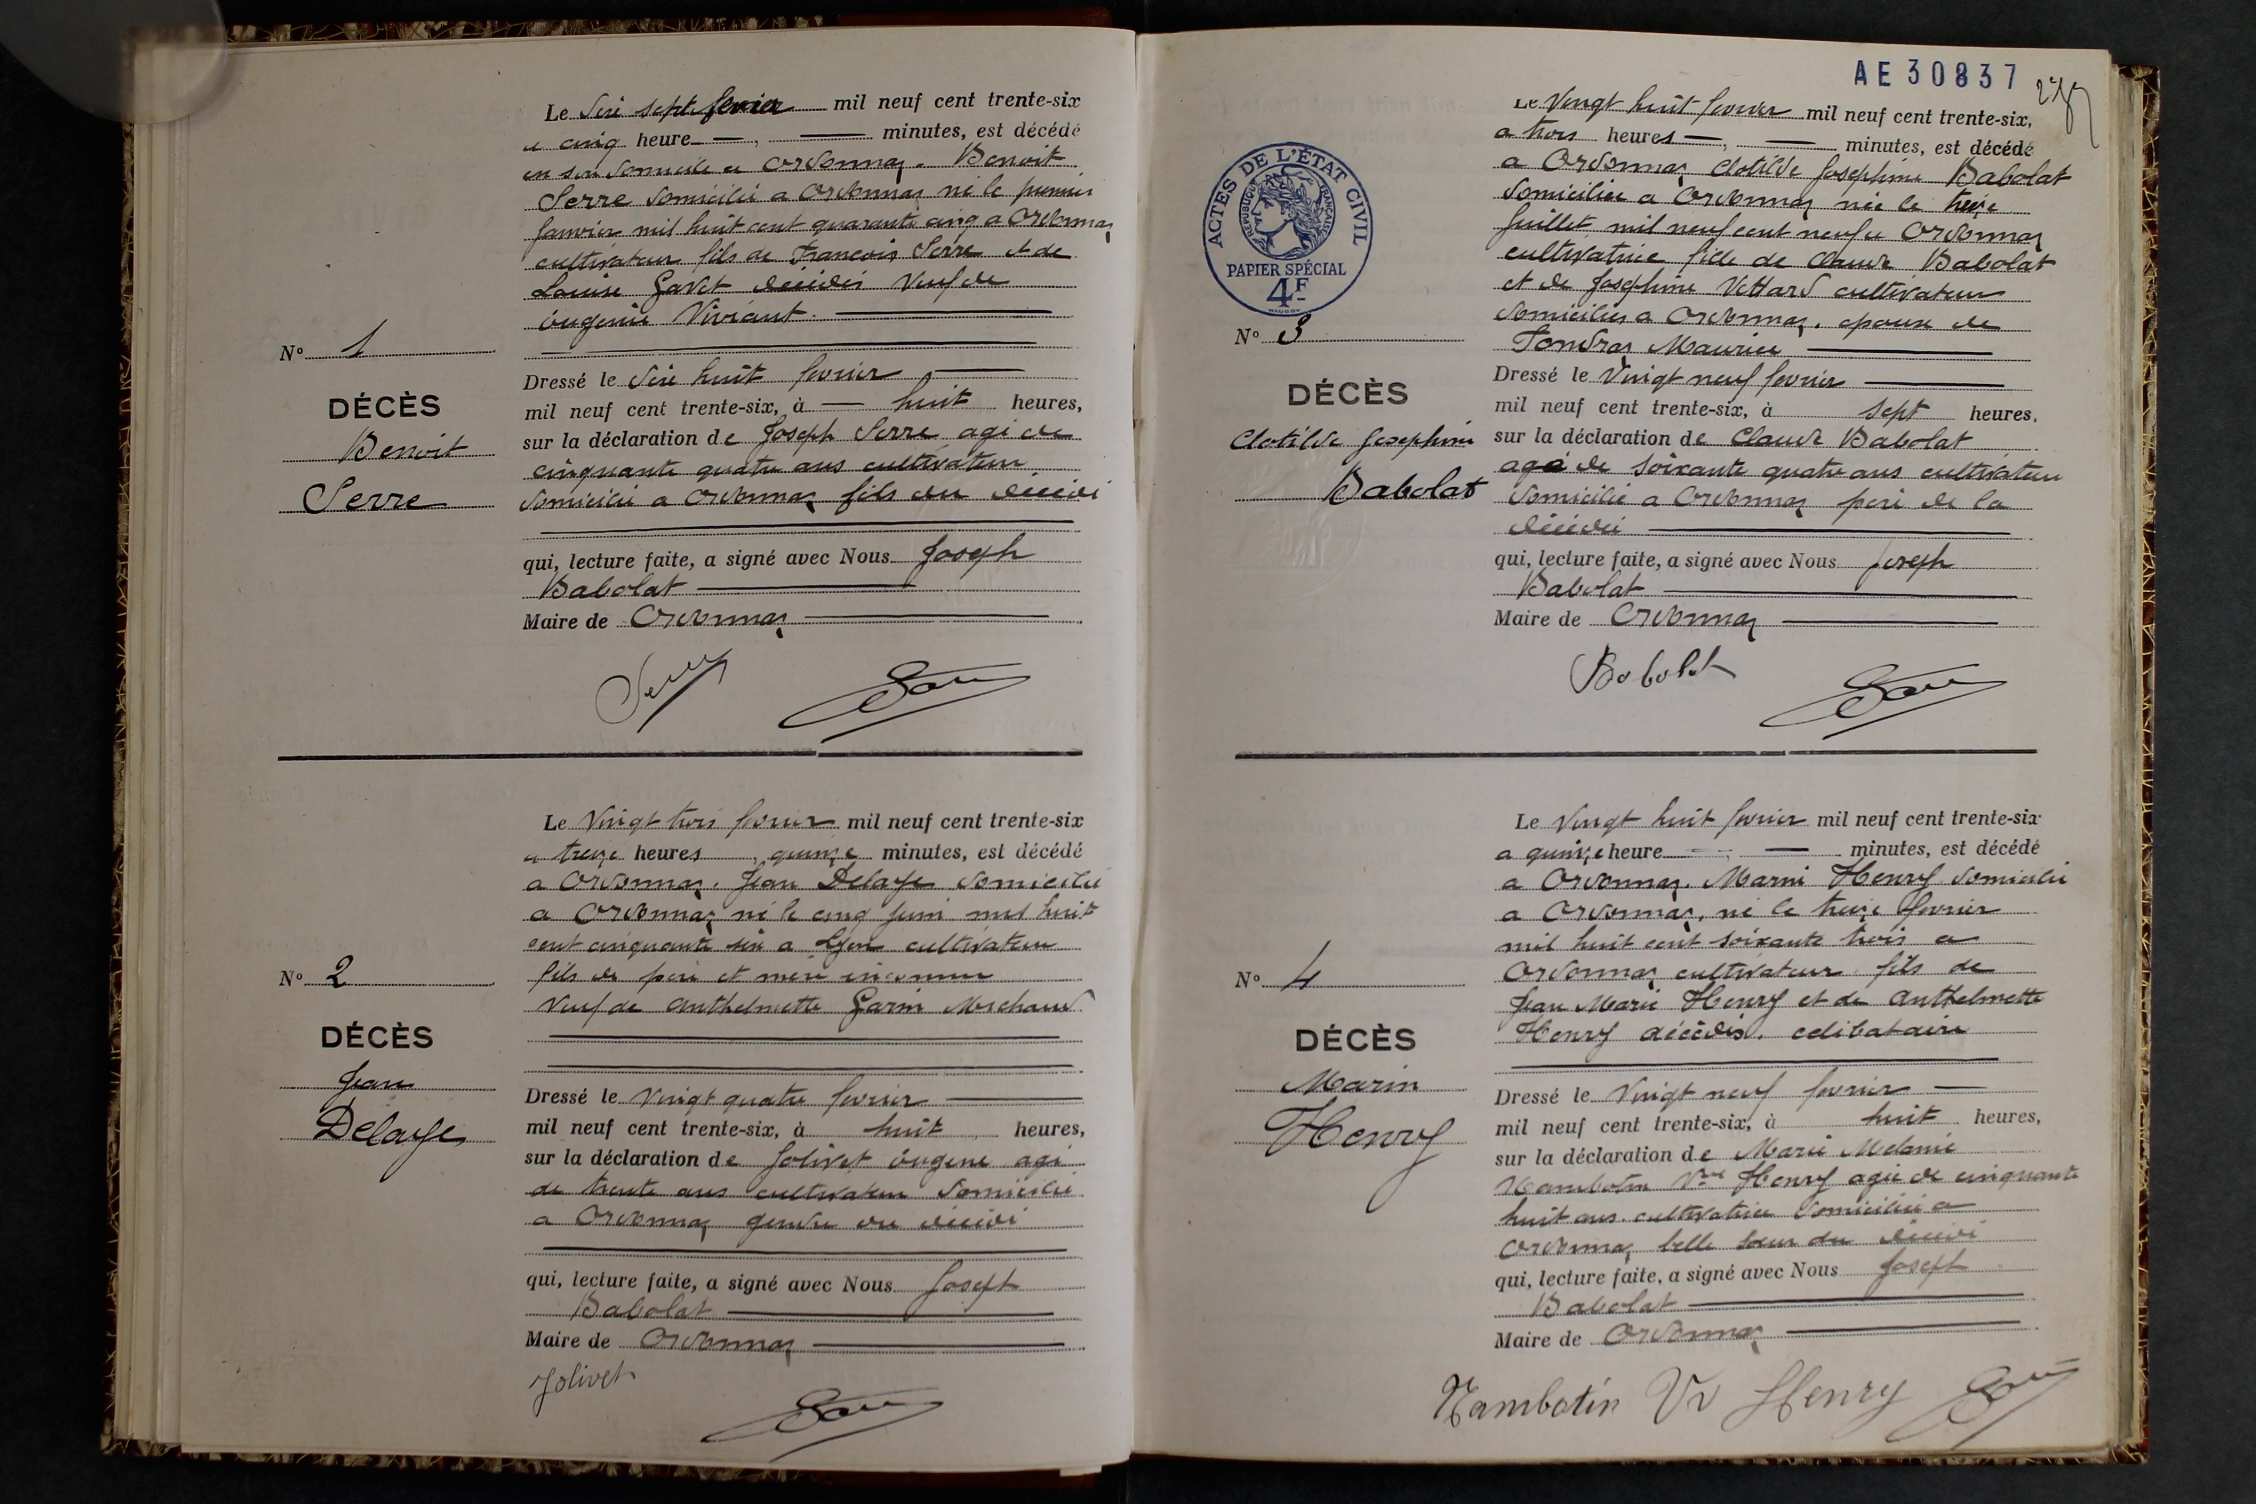 Le Dix sept fevrier mil neuf cent trente-six
a cinq heure , minutes, est décédé
en son domicile a Ordonnaz. Benoit
Serre domicilié a Ordonnaz né le premier
Janvier mil huit cent quarante cinq a Ordonnaz
cultivateur fils de Francois Serre et de
Louise Gavet décédés Veuf de
eugenie Viviant
No 1
DÉCÈS
Benoit
Serre
Dressé le Dix huit fevrier
mil neuf cent trente-six, à huit heures,
sur la déclaration de Joseph Serre agé de
cinquante quatre ans cultivateur
domicilié a Ordonnaz fils du décédé
qui, lecture faite, a signé avec Nous Joseph
Babolat
Maire de Ordonnaz
Serre
Le Vingt trois fevrier mil neuf cent trente-six
a treize heures , quinze minutes, est décédé
a Ordonnaz. Jean Delaye domicilié
a Ordonnaz né le cinq juin mil huit
cent cinquante six a Lyon cultivateur
fils de peré et meré inconnu
Veuf de Anthelmette Garin Michaud
No 2
DÉCÈS
Jean
Delaye
Dressé le Vingt quatre fevrier
mil neuf cent trente-six, à huit heures,
sur la déclaration de Jolivet eugene agé
de trente ans cultivateur domicilié
a Ordonnaz gendre du décédé
qui, lecture faite, a signé avec Nous Joseph
Babolat
Maire de Ordonnaz
Jolivet
AE 30837
ACTES DE L'ÉTAT CIVIL
RÉPUBLIQUE FRANÇAISE
PAPIER SPÉCIAL
4F
Le Vingt huit fevrier mil neuf cent trente-six,
a trois heures , minutes, est décédé
a Ordonnaz Clotilde Josephine Babolat
domiciliée a Ordonnaz née le treize
Juillet mil neuf cent neuf a Ordonnaz
cultivatrice fille de Claude Babolat
et de Josephine Vettard cultivateurs
domiciliés a Ordonnaz. epouse de
Tondraz Maurice
No 3
DÉCÈS
Clotilde Josephine
Babolat
Dressé le Vingt neuf fevrier
mil neuf cent trente-six, à sept heures,
sur la déclaration de Claude Babolat
agé de soixante quatre ans cultivateur
domicilié a Ordonnaz peré de la
décédée
qui, lecture faite, a signé avec Nous Joseph
Babolat
Maire de Ordonnaz
Babolat
Le Vingt huit fevrier mil neuf cent trente-six
a quinze heure , minutes, est décédé
a Ordonnaz. Marin Henry domicilié
a Ordonnaz, né le treize fevrier
mil huit cent soixante trois a
Ordonnaz cultivateur fils de
Jean Marie Henry et de Anthelmette
Henry décédés. celibataire
No 4
DÉCÈS
Marin
Henry
Dressé le Vingt neuf fevrier
mil neuf cent trente-six, à huit heures,
sur la déclaration de Marie Melanie
Nambotin Vve Henry agée de cinquante
huit ans. cultivatrice domiciliée a
Ordonnaz belle sœur du décédé
qui, lecture faite, a signé avec Nous Joseph
Babolat
Maire de Ordonnaz
Nambotin Vv Henry